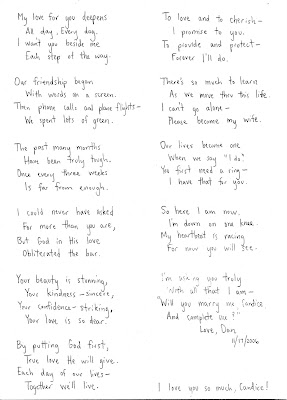 My love for you deepens
All day, Every day.
I want you beside me
Each step of the way.
Our friendship began
With words on a screen.
Then phone calls and plane flights–
We spent lots of green.
The past many months
Have been truly tough.
Once every three weeks
Is far from enough.
I could never have asked
For more than you are,
But God in His love
Obliterated the bar.
Your beauty is stunning,
Your kindness – sincere,
Your confidence – striking,
Your love is so dear.
By putting God first,
True love He will give.
Each day of our lives –
Together we'll live.
To love and to cherish –
I promise to you.
To provide and protect –
Forever I'll do.
There's so much to learn
As we move thru this life.
I can't go alone –
Please become my wife.
Our lives become one
When we say "I do".
You first need a ring –
I have that for you.
So here I am now,
I'm down on one knee.
My heartbeat is racing
For now you will see.
I'm asking you truly
With all that I am –
"Will you marry me Candice
And complete me?"
Love, Dan
11/17/2006
I love you so much, Candice!